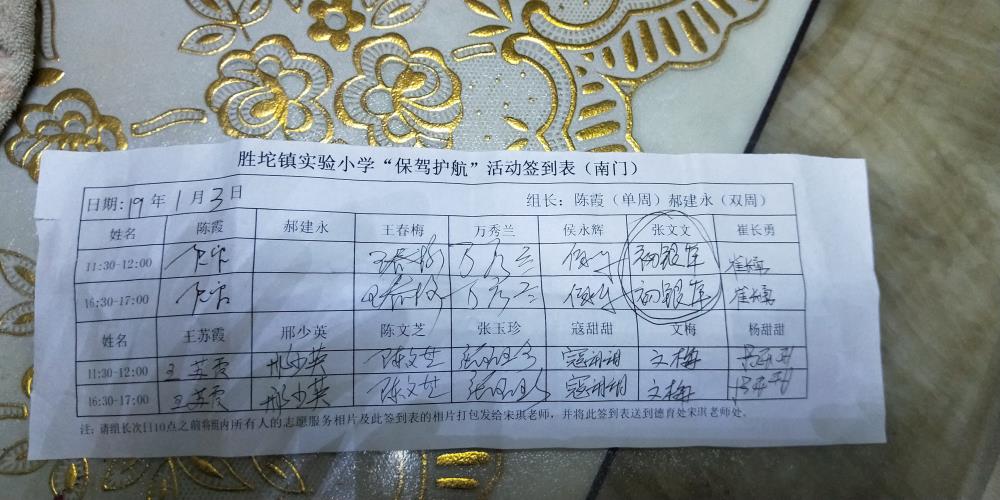 胜坨镇实验小学“保驾护航”活动签到表（南门）
日期:19 年 1 月 3 日 组长：陈霞（单周）郝建永（双周）
姓名 陈霞 郝建永 王春梅 万秀兰 侯永辉 张文文 崔长勇
11:30-12:00 王春梅 万秀兰
16:30-17:00 王春梅 万秀兰
姓名 王苏霞 邢少英 陈文芝 张玉珍 寇甜甜 文梅 杨甜甜
11:30-12:00 王苏霞 邢少英 陈文芝 张玉珍 寇甜甜 文梅
16:30-17:00 王苏霞 邢少英 陈文芝 张玉珍 寇甜甜 文梅
注：请组长次日10点之前将组内所有人的志愿服务相片及此签到表的相片打包发给宋琪老师，并将此签到表送到德育处宋琪老师处。